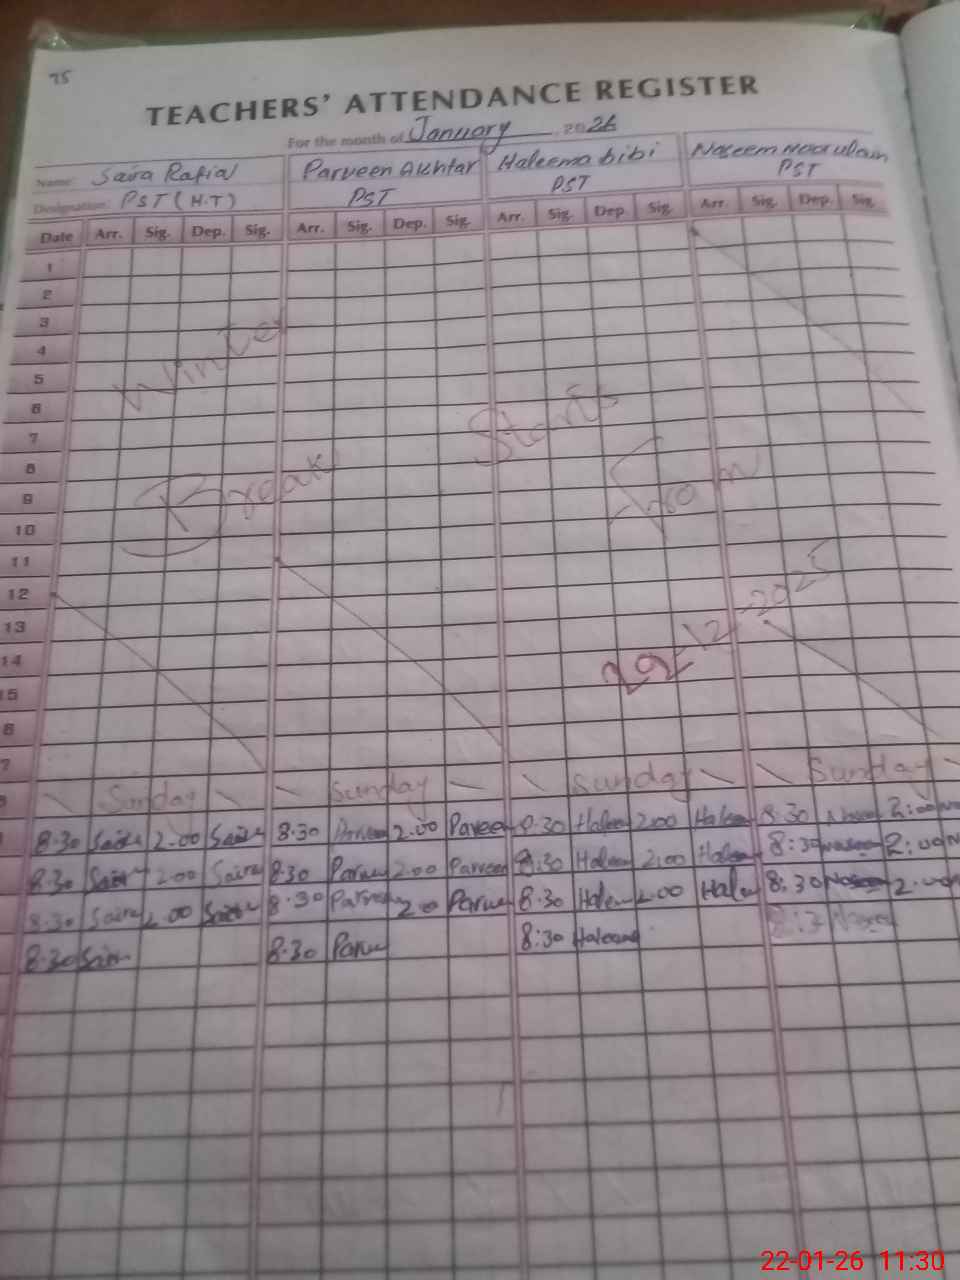 75
TEACHERS' ATTENDANCE REGISTER
For the month of January 2026
Name: Saira Rafia Parveen Akhtar Haleema bibi Naseem
Designation: PST (H.T) PST PST PST
Date Arr. Sig. Dep. Sig. Arr. Sig. Dep. Sig. Arr. Sig. Dep. Sig. Arr. Sig. Dep. Sig.
1
2
3
4
5
6
7
8
9
10
11
12
13
14
15
6
7
Winter
Break Starts From
29-12-2025
Sunday Sunday Sunday Sunday
8.30 Saira 2.00 Saira 8.30 2.00 Parveen 8.30 Haleem 2.00 Haleem 8.30 2:00
8.30 Saira 2.00 Saira 8.30 Parve 2.00 Parveen 8.30 Haleem 2.00 Haleem 8:30 2:00
8.30 Saira 2.00 8.30 Parveen 2.0 Parve 8.30 Haleem 2.00 Hale 8:30 2.00
8.30 Sair 8.30 Parve 8:30 Haleema
22-01-26 11:30